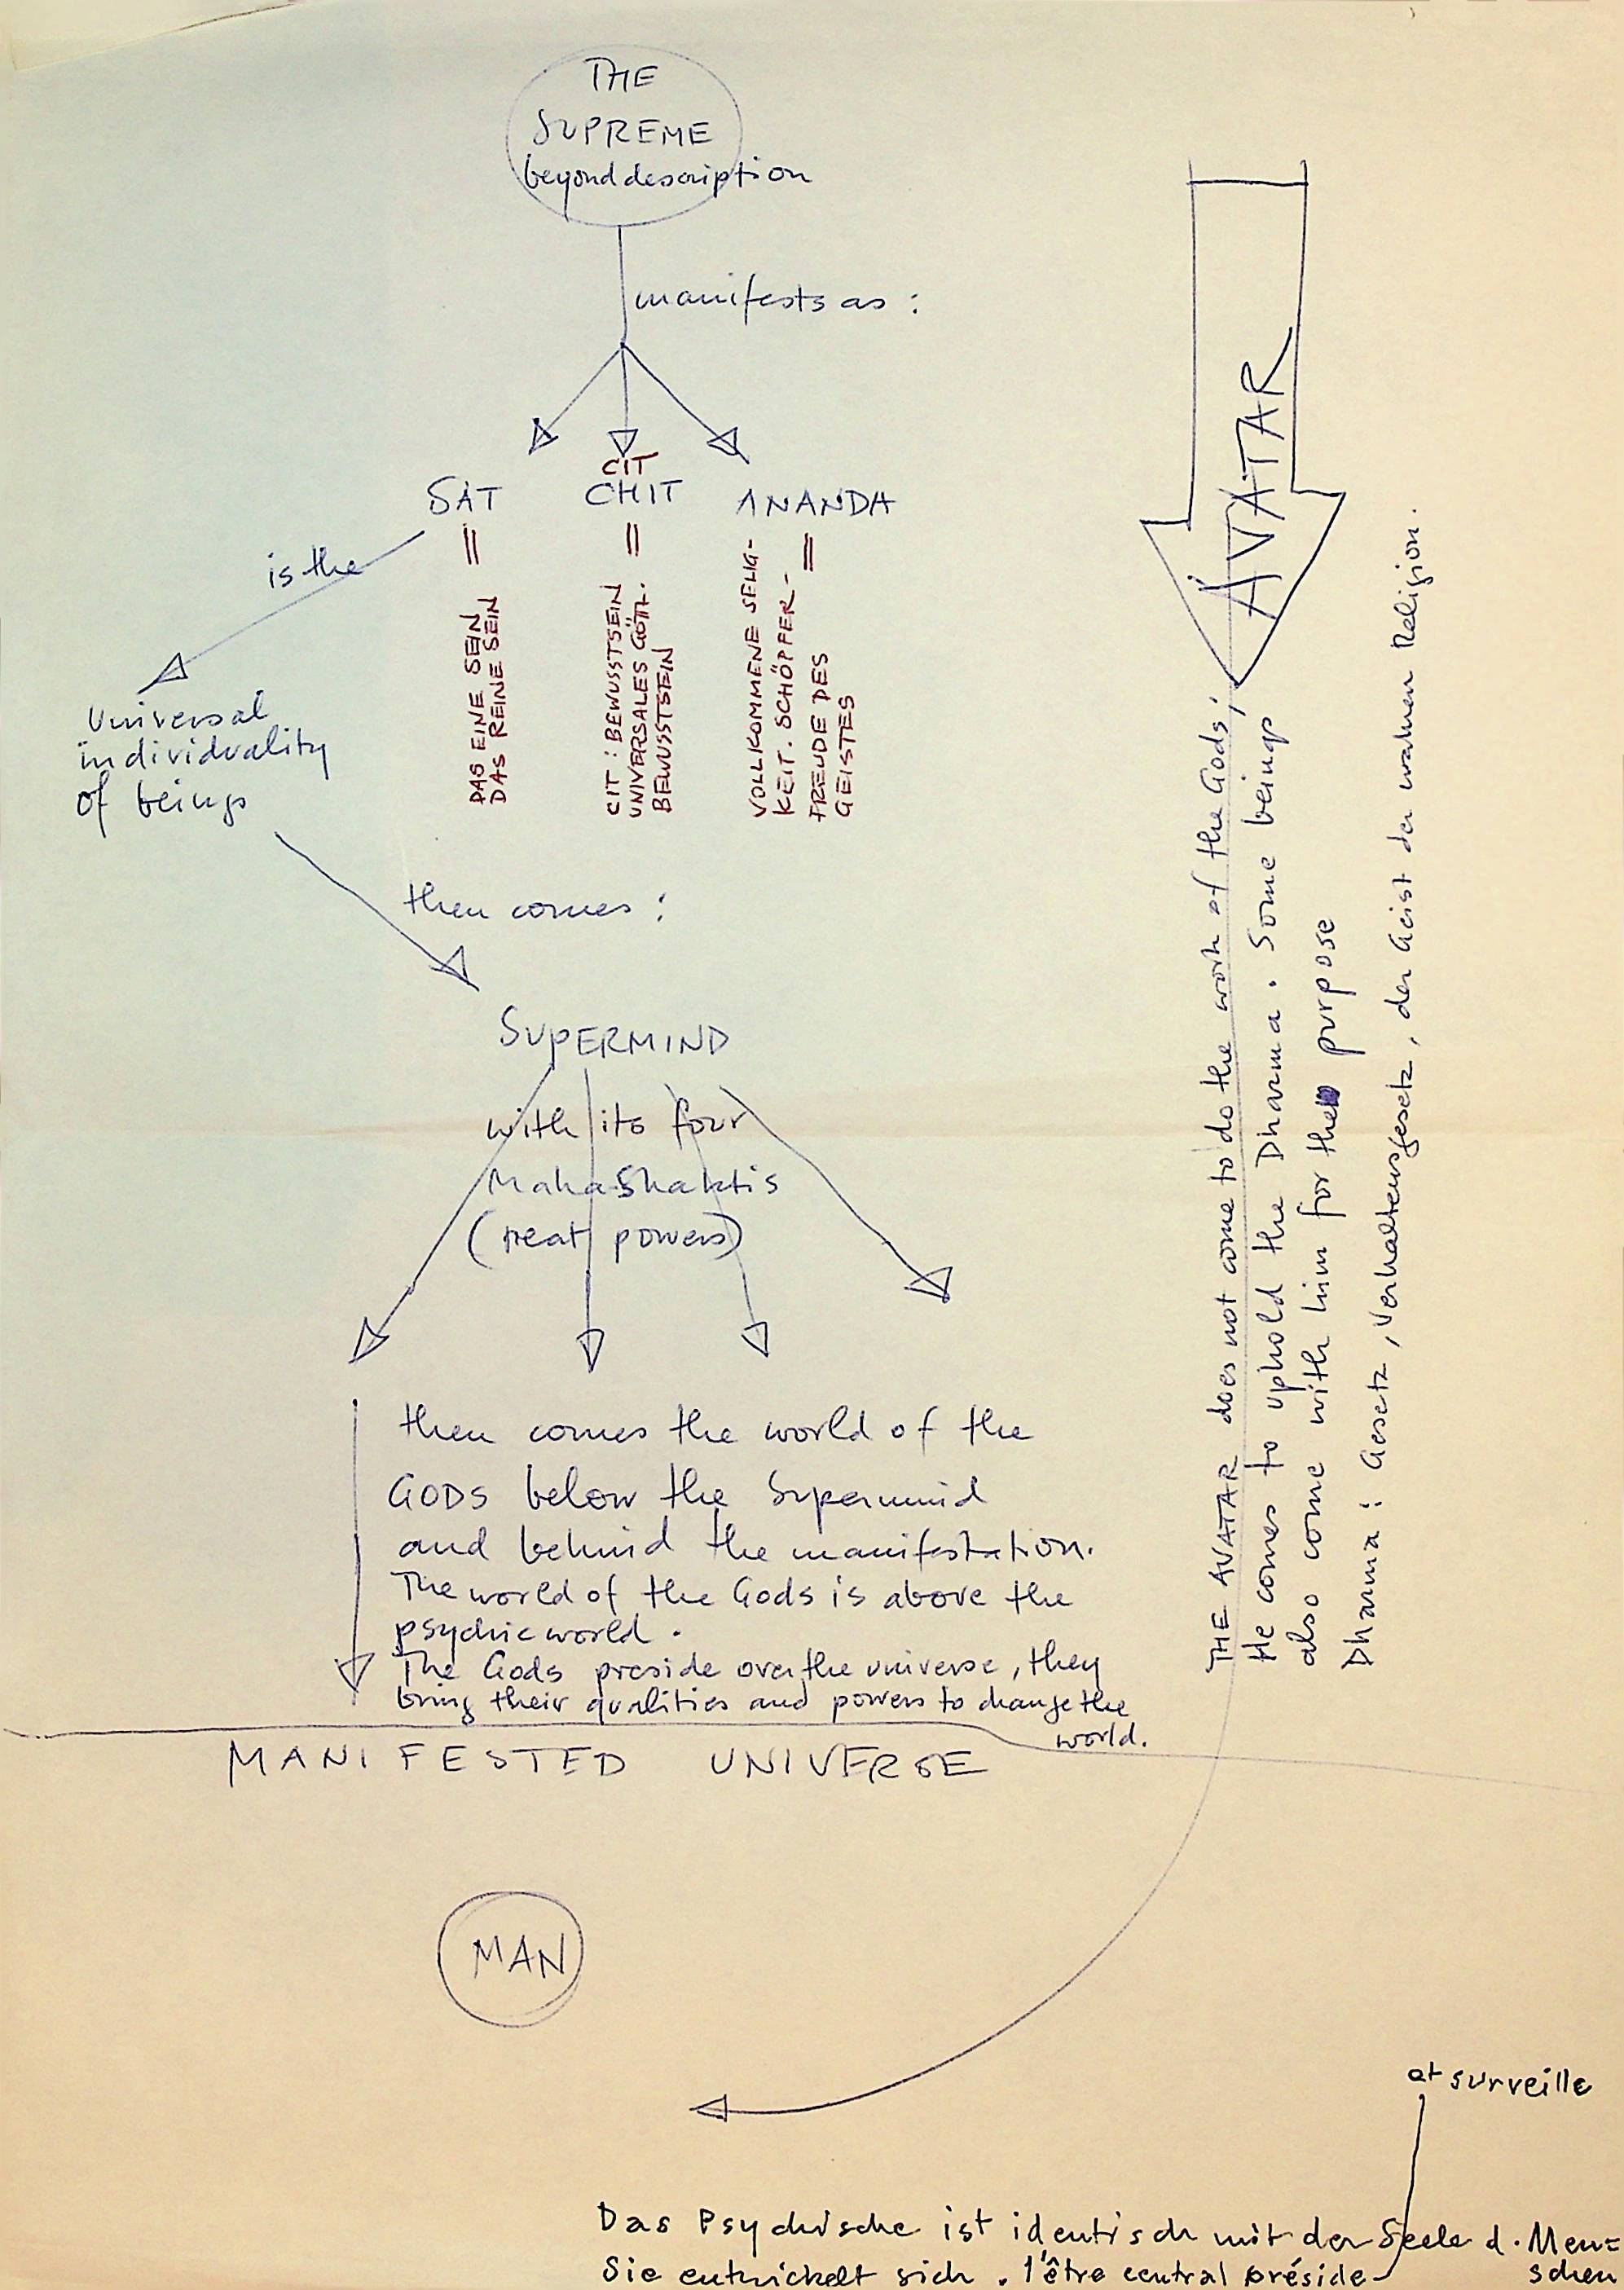 THE
SUPREME
beyond description
manifests as :
CIT
SAT CHIT ANANDA
= = =
is the
DAS EINE SEIN
DAS REINE SEIN
CIT : BEWUSSTSEIN
UNIVERSALES GÖTTL.
BEWUSSTSEIN
VOLLKOMMENE SELIG-
KEIT. SCHÖPFER-
FREUDE DES
GEISTES
Universal
individuality
of beings
then comes :
SUPERMIND
with its four
MahaShaktis
(great powers)
then comes the world of the
GODS below the Supermind
and behind the manifestation.
The world of the Gods is above the
psychic world .
The Gods preside over the universe, they
bring their qualities and powers to change the
world.
MANIFESTED UNIVERSE
MAN
AVATAR
THE AVATAR does not come to do the work of the Gods ;
He comes to uphold the Dharma . Some beings
also come with him for the purpose
Dharma : Gesetz, Verhaltensgesetz, der Geist der wahren Religion .
et surveille
Das Psychische ist identisch mit der Seele d. Men=
schen
Sie entwickelt sich . l'être central préside